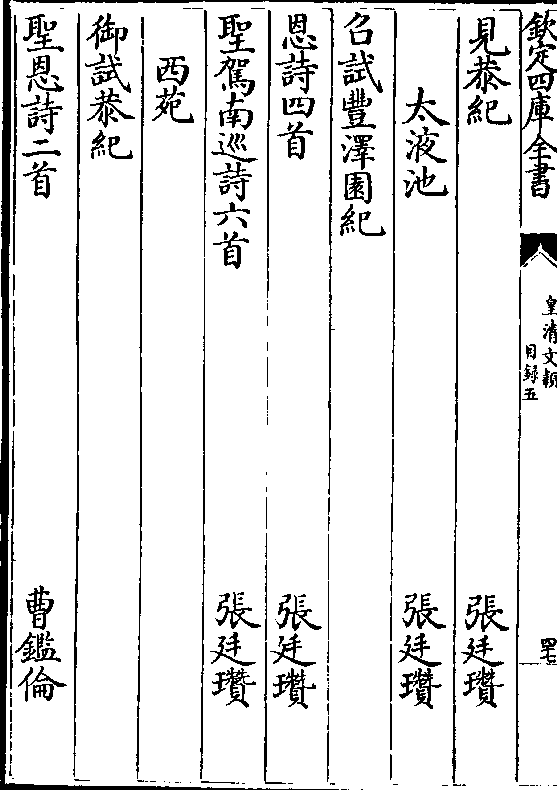 欽定四庫全書
皇清文穎
目録五
見恭紀 張廷瓚
太液池 張廷瓚
召試豐澤園紀
恩詩四首 張廷瓚
聖駕南巡詩六首 張廷瓚
西苑
御試恭紀
聖恩詩二首 曹鑑倫